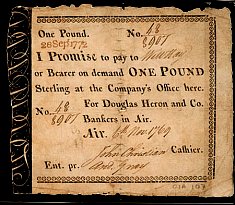 One Pound. No. 48
28 Sep. 1772 8907
I PROMISE to pay to
or Bearer on demand ONE POUND
Sterling at the Company's Office here.
No. 48 For Douglas Heron and Co.
8907 Bankers in Air.
Air. 6th Nov. 1769
John Christian Cashier.
Ent. pr.